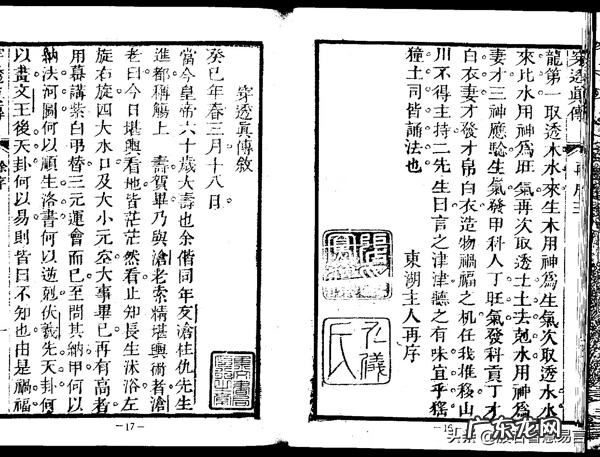 穿透眞傳
再序三
龍第一取透木水來生木用神爲生氣次取透水水
來比水用神爲旺氣再次取透土土去剋水用神爲
妻才三神應騐生氣發甲科人丁旺氣發科貢丁才
白衣妻才發才帛白衣造物禍福之机任我推移山
川不得主持二先生曰言之津津聽之有味宜乎猺
獞土司皆誦法也
東湖主人再序
弘儀
氏
-16-
穿透眞傳敘
癸巳年春三月十八日
當今皇帝六十歲大壽也余偕同年友滄柱仇先生
進都稱觴上
壽賀畢乃與滄老索精堪輿術者滄
老曰今日堪輿看地皆茫茫然看止知長生沐浴左
旋右旋四大水口及大小元空大事畢已再有高者
用幕講紫白弔替三元運會而已至問其納甲何以
納法河圖何以順生洛書何以逆剋伏羲先天卦何
以畫文王後天卦何以易則皆曰不知也由是禍福
-17-
頭条
广东龙网
www.gdlongw.com